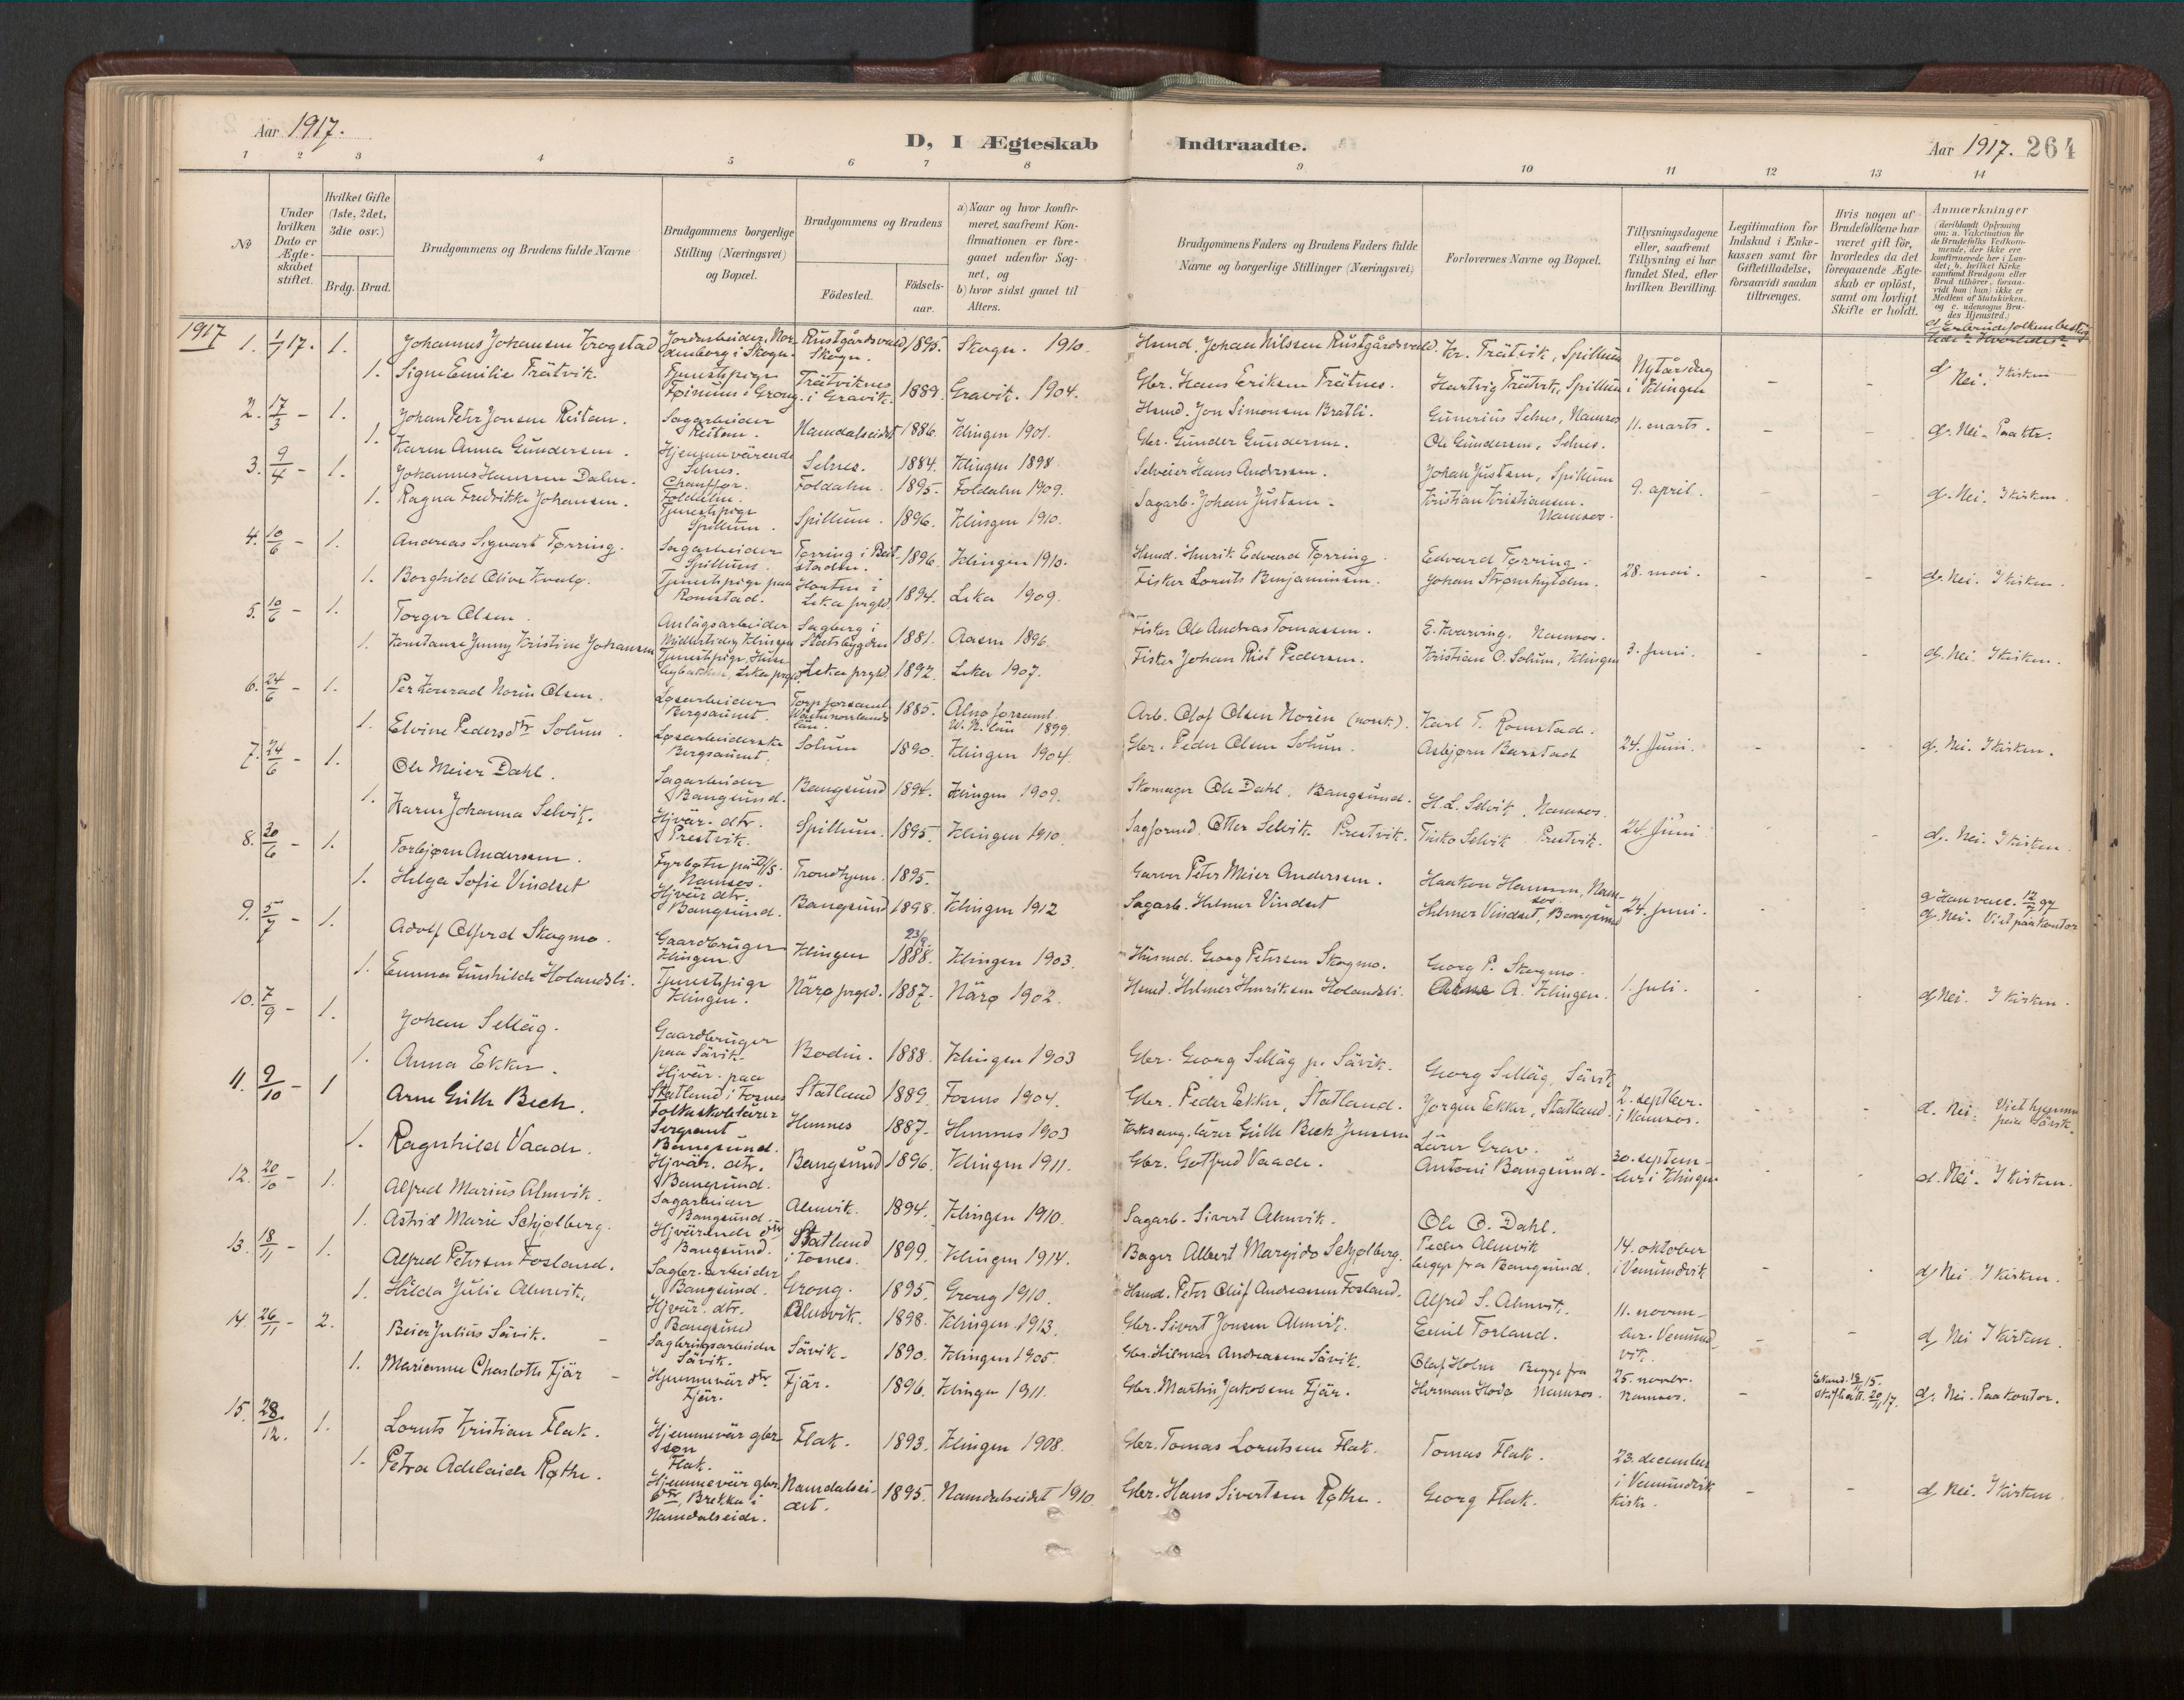 Aar 1917.
D, I Ægteskab Indtraadte.
Aar 1917. 264
1 2 3 4 5 6 7 8 9 10 11 12 13 14
No
Under hvilken Dato er Ægteskabet stiftet.
Hvilket Gifte (1ste, 2det, 3die osv.)
Brdg. Brud.
Brudgommens og Brudens fulde Navne
Brudgommens borgerlige Stilling (Næringsvei) og Bopæl.
Brudgommens og Brudens
Födested.
Födselsaar.
a) Naar og hvor konfirmeret, saafremt Konfirmationen er foregaaet udenfor Sognet, og
b) hvor sidst gaaet til Alters.
Brudgommens Faders og Brudens Faders fulde Navne og borgerlige Stillinger (Næringsvei)
Forlovernes Navne og Bopæl.
Tillysningsdagene eller, saafremt Tillysning ei har fundet Sted, efter hvilken Bevilling.
Legitimation for Indskud i Enkekassen samt for Giftetilladelse, forsaavidt saadan tiltrænges.
Hvis nogen af Brudefolkene har været gift för, hvorledes da det foregaaende Ægteskab er oplöst, samt om lovligt Skifte er holdt.
Anmærkninger
1917 1. 1/1 17. 1. Johannes Johansen Krogstad Jordarbeider, Nordenborg i Skogn. Rustgårdsvald Skogn. 1895. Skogn. 1910. Hsmd. Johan Nilssen Rustgårdsvald. Kr. Trätvik, Spillum Nytårsdag
1. Signe Emilie Trätvik. Tjenestepige Trätviknes i Gravik. 1889. Gravik. 1904. Gbr. Hans Eriksen Trätnes. Hartvig Trätvik, Spillum i Klingen d Nei. I kirken
2. 17/3 - 1. Johan Peter Jensen Reitan. Sagarbeider Reitan. Namdalseidet 1886. Klingen 1901. Hsmd. Jon Simonsen Bratli. Gunerius Selnes, Namsos 11. marts.
1. Karen Anna Gundersen. Hjemmeværende Selnes. Selnes. 1884. Klingen 1898 Gbr. Gunder Gundersen. Ole Gundersen, Selnes. d. Nei.
3. 9/4 - 1. Johannes Hansen Dalen. Chauffør. Foldalen. Foldalen. 1895. Foldalen 1909. Selveier Hans Anderssen. Johan Justsen, Spillum 9. april.
1. Ragna Fredrikke Johansen. Tjenestepige Spillum. Spillum. 1896. Klingen 1910. Sagarb. Johan Justsen. Kristian Kristiansen. Namsos. d. Nei. I kirken.
4. 10/6 - 1. Andreas Sigvart Tørring. Sagarbeider Spillum. Tørring i Beitstaden. 1896. Klingen 1910. Hsmd. Henrik Edvard Tørring. Edvard Tørring. 28. mai.
1. Borghild Olive Kvalø. Tjenestepige paa Romstad. Horten i Leka prgld. 1894. Leka 1909. Fisker Lornts Benjaminsen. Johan Strømhylden. d. Nei. I kirken.
5. 10/6 - 1. Torger Olsen. Anlägsarbeider Midlertidig Klingen Sagberg i Statsbygden 1881. Aasen 1896. Fisker Ole Andreas Tomassen. E. Kvarving, Namsos. 3. Juni.
1. Konstanse Jenny Kristine Johansen Tjenestepige, Leka prgld. Leka prgld. 1892. Leka 1907. Fisker Johan Rist Pedersen. Kristian O. Solum, Klingen d. Nei. I kirken.
6. 24/6 - 1. Per Konrad Norin Olsen. Løsarbeider Bergsaunet. Torp forsaml. Westernorrlands län. 1885. Alnø forsaml. W. N. län 1899. Arb. Olof Olsen Norén (norsk). Karl T. Romstad. 24. Juni.
1. Elvine Pedersdtr Solum. Løsarbeiderske Bergsaunet. Solum 1890. Klingen 1904. Gbr. Peder Olsen Solum. Asbjørn Barstad d. Nei. I kirken.
7. 24/6 - 1. Ole Meier Dahl. Sagarbeider Bangsund. Bangsund 1894. Klingen 1909. Skomager Ole Dahl, Bangsund. H. L. Selvik, Namsos. 24. Juni
1. Karen Johanna Selvik. Hjvär. dtr. Prestvik. Spillum. 1895. Klingen 1910. Sagformd. Otter Selvik Prestvik. Selvik Prestvik. d. Nei. I kirken.
8. 30/6 - 1. Torbjørn Andersen. Fyrbøter på D/S. Namsos. Trondhjem. 1895. Garver Peter Meier Andersen. Haakon Hansen, Namsos 24. Juni.
1. Helga Sofie Vindset Hjvär dtr. Bangsund. Bangsund 1898. Klingen 1912 Sagarb. Helmer Vindset Helmer Vindset, Bangsund d. Nei. Viet paa kontor
9. 5/7 - 1. Adolf Alfred Skogmo. Gaardbruger Klingen. Klingen 23/9 1888. Klingen 1903. Husmd. Georg Petersen Skogmo. Georg P. Skogmo. 1. Juli.
1. Emma Gunhilde Holandsli. Tjenestepige Klingen. Närø prgld. 1887. Närø 1902. Hsmd. Helmer Henriksen Holandsli. A. Klingen. d Nei. I kirken.
10. 7/9 - 1. Johan Selläg. Gaardbruger paa Sävik. Bodin. 1888. Klingen 1903 Gbr. Georg Selläg på Sävik. Georg Selläg, Sävik 2. septbr. i Namsos.
1. Anna Ekker. Hjvär. paa Statland i Fosnes Statland 1889. Fosnes 1904. Gbr. Peder Ekker, Statland. Jørgen Ekker, Statland. d. Nei. Viet hjemme paa Sävik.
11. 9/10 - 1 Arne Gülle Bech. Folkeskolelärer Sergeant Bangsund. Hemnes 1887. Hemnes 1903 Kirkesang. lärer Gülle Bech Jensen Lärer Grav. 30. september i Klingen
1. Ragnhild Vaade. Hjvär. dtr. Bangsund. Bangsund 1896. Klingen 1911. Gbr. Gotfred Vaade. Antoni Bangsund. d. Nei. I kirken.
12. 20/10 - 1. Alfred Marius Almvik. Sagarbeider Bangsund. Almvik. 1894. Klingen 1910. Sagarb. Sivert Almvik. Ole O. Dahl. 14. oktober i Vemundvik
1. Astrid Marie Schjølberg. Hjvärende dtr Bangsund. Statland i Fosnes. 1899. Klingen 1914. Bager Albert Margido Schjølberg. Peder Almvik begge fra Bangsund. d. Nei. I kirken.
13. 18/11 - 1. Alfred Petersen Fosland. Sagbr. arbeider Bangsund. Grong. 1895. Grong 1910. Hsmd. Peter Oluf Andreassen Fosland. Alfred S. Almvik. 11. november. Vemundvik.
1. Hilda Julie Almvik. Hjvär. dtr. Bangsund Almvik. 1898. Klingen 1913. Gbr. Sivert Jensen Almvik. Emil Forland. d. Nei I kirken.
14. 26/11 - 2. Beier Julius Sävik. Sagbrugsarbeider Sävik. Sävik. 1890. Klingen 1905. Gbr. Hilmar Andreassen Sävik. Olaf Holm Begge fra 25. novbr. Namsos.
1. Marianne Charlotte Fjär Hjemmevär dtr. Fjär. Fjär. 1896. Klingen 1911. Gbr. Martin Jakobsen Fjär. Herman Hodø Namsos. d. Nei. Paa kontor.
15. 28/12. 1. Lornts Kristian Flak. Hjemmevär gbr. søn Flak. Flak. 1893. Klingen 1908. Gbr. Tomas Lorntsen Flak. Tomas Flak. 23. december i Vemundvik kirke.
1. Petra Adelaide Røthe. Hjemmevär gbr. dtr, Brekka i Namdalseide. Namdalseidet. 1895. Namdalseidet 1910. Gbr. Hans Sivertsen Røthe. Georg Flak. d. Nei. I kirken.